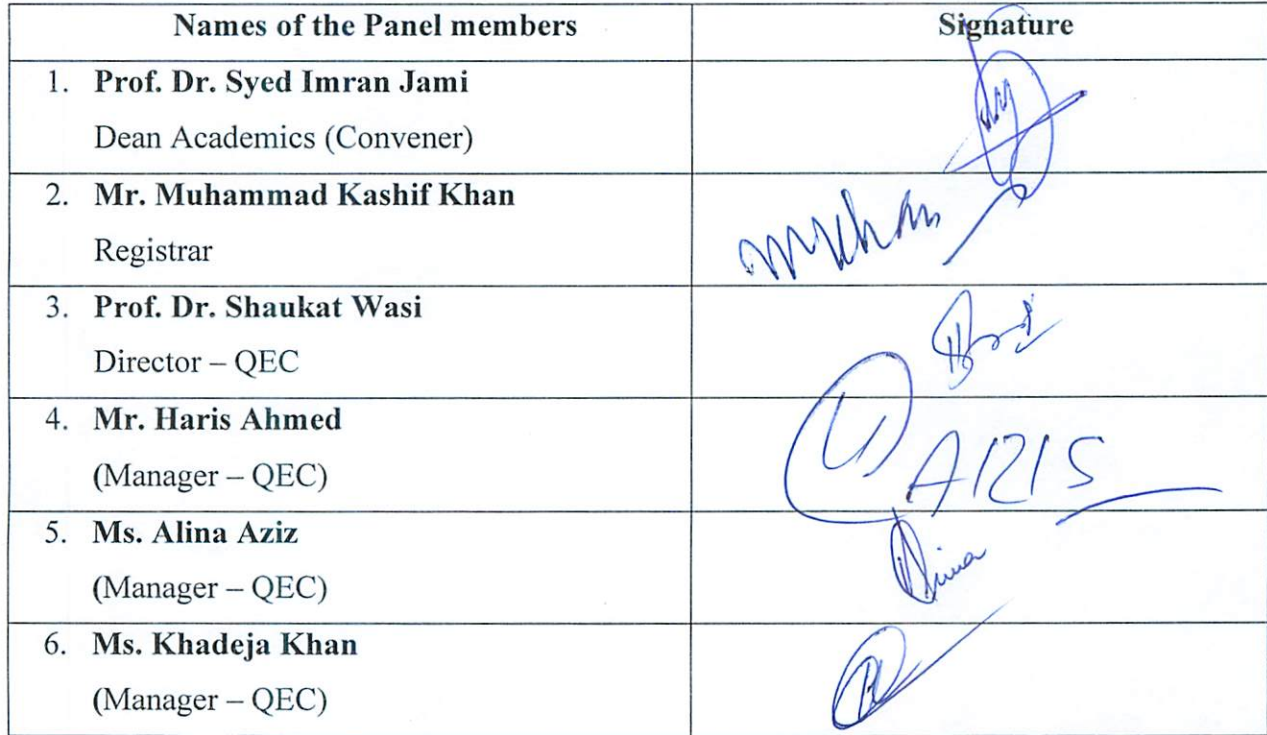 Names of the Panel members Signature
1. Prof. Dr. Syed Imran Jami
Dean Academics (Convener)
2. Mr. Muhammad Kashif Khan
Registrar
3. Prof. Dr. Shaukat Wasi
Director – QEC
4. Mr. Haris Ahmed
(Manager – QEC)
ARIS
5. Ms. Alina Aziz
(Manager – QEC)
6. Ms. Khadeja Khan
(Manager – QEC)